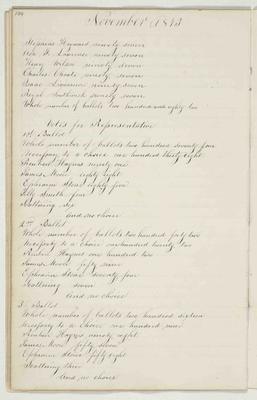 November 1843
Stephens Hayward ninety seven
Asa F. Lawrence ninety seven
Henry Wilson ninety seven
Charles Choate ninety seven
Isaac Livermore ninety seven
Royal Southwick seventy seven
Whole number of ballots two hundred and eighty two
Votes for Representative
1st Ballot
Whole number of ballots two hundred seventy four
Necessary to a choice one hundred thirty eight
Reuben Haynes ninety one
James Moore eighty eight
Ephraim Stone eighty five
Polly Smith four
Scattering Six
and no choice
2nd Ballot
Whole number of ballots two hundred forty two
Necessary to a choice one hundred twenty two
Reuben Haynes one hundred two
James Moore fifty nine
Ephraim Stone seventy four
Scattering seven
and no choice
3 Ballot
Whole number of ballots two hundred sixteen
Necessary to a choice one hundred nine
Reuben Haynes ninety eight
James Moore fifty seven
Ephraim Stone fifty eight
Scattering three
and no choice